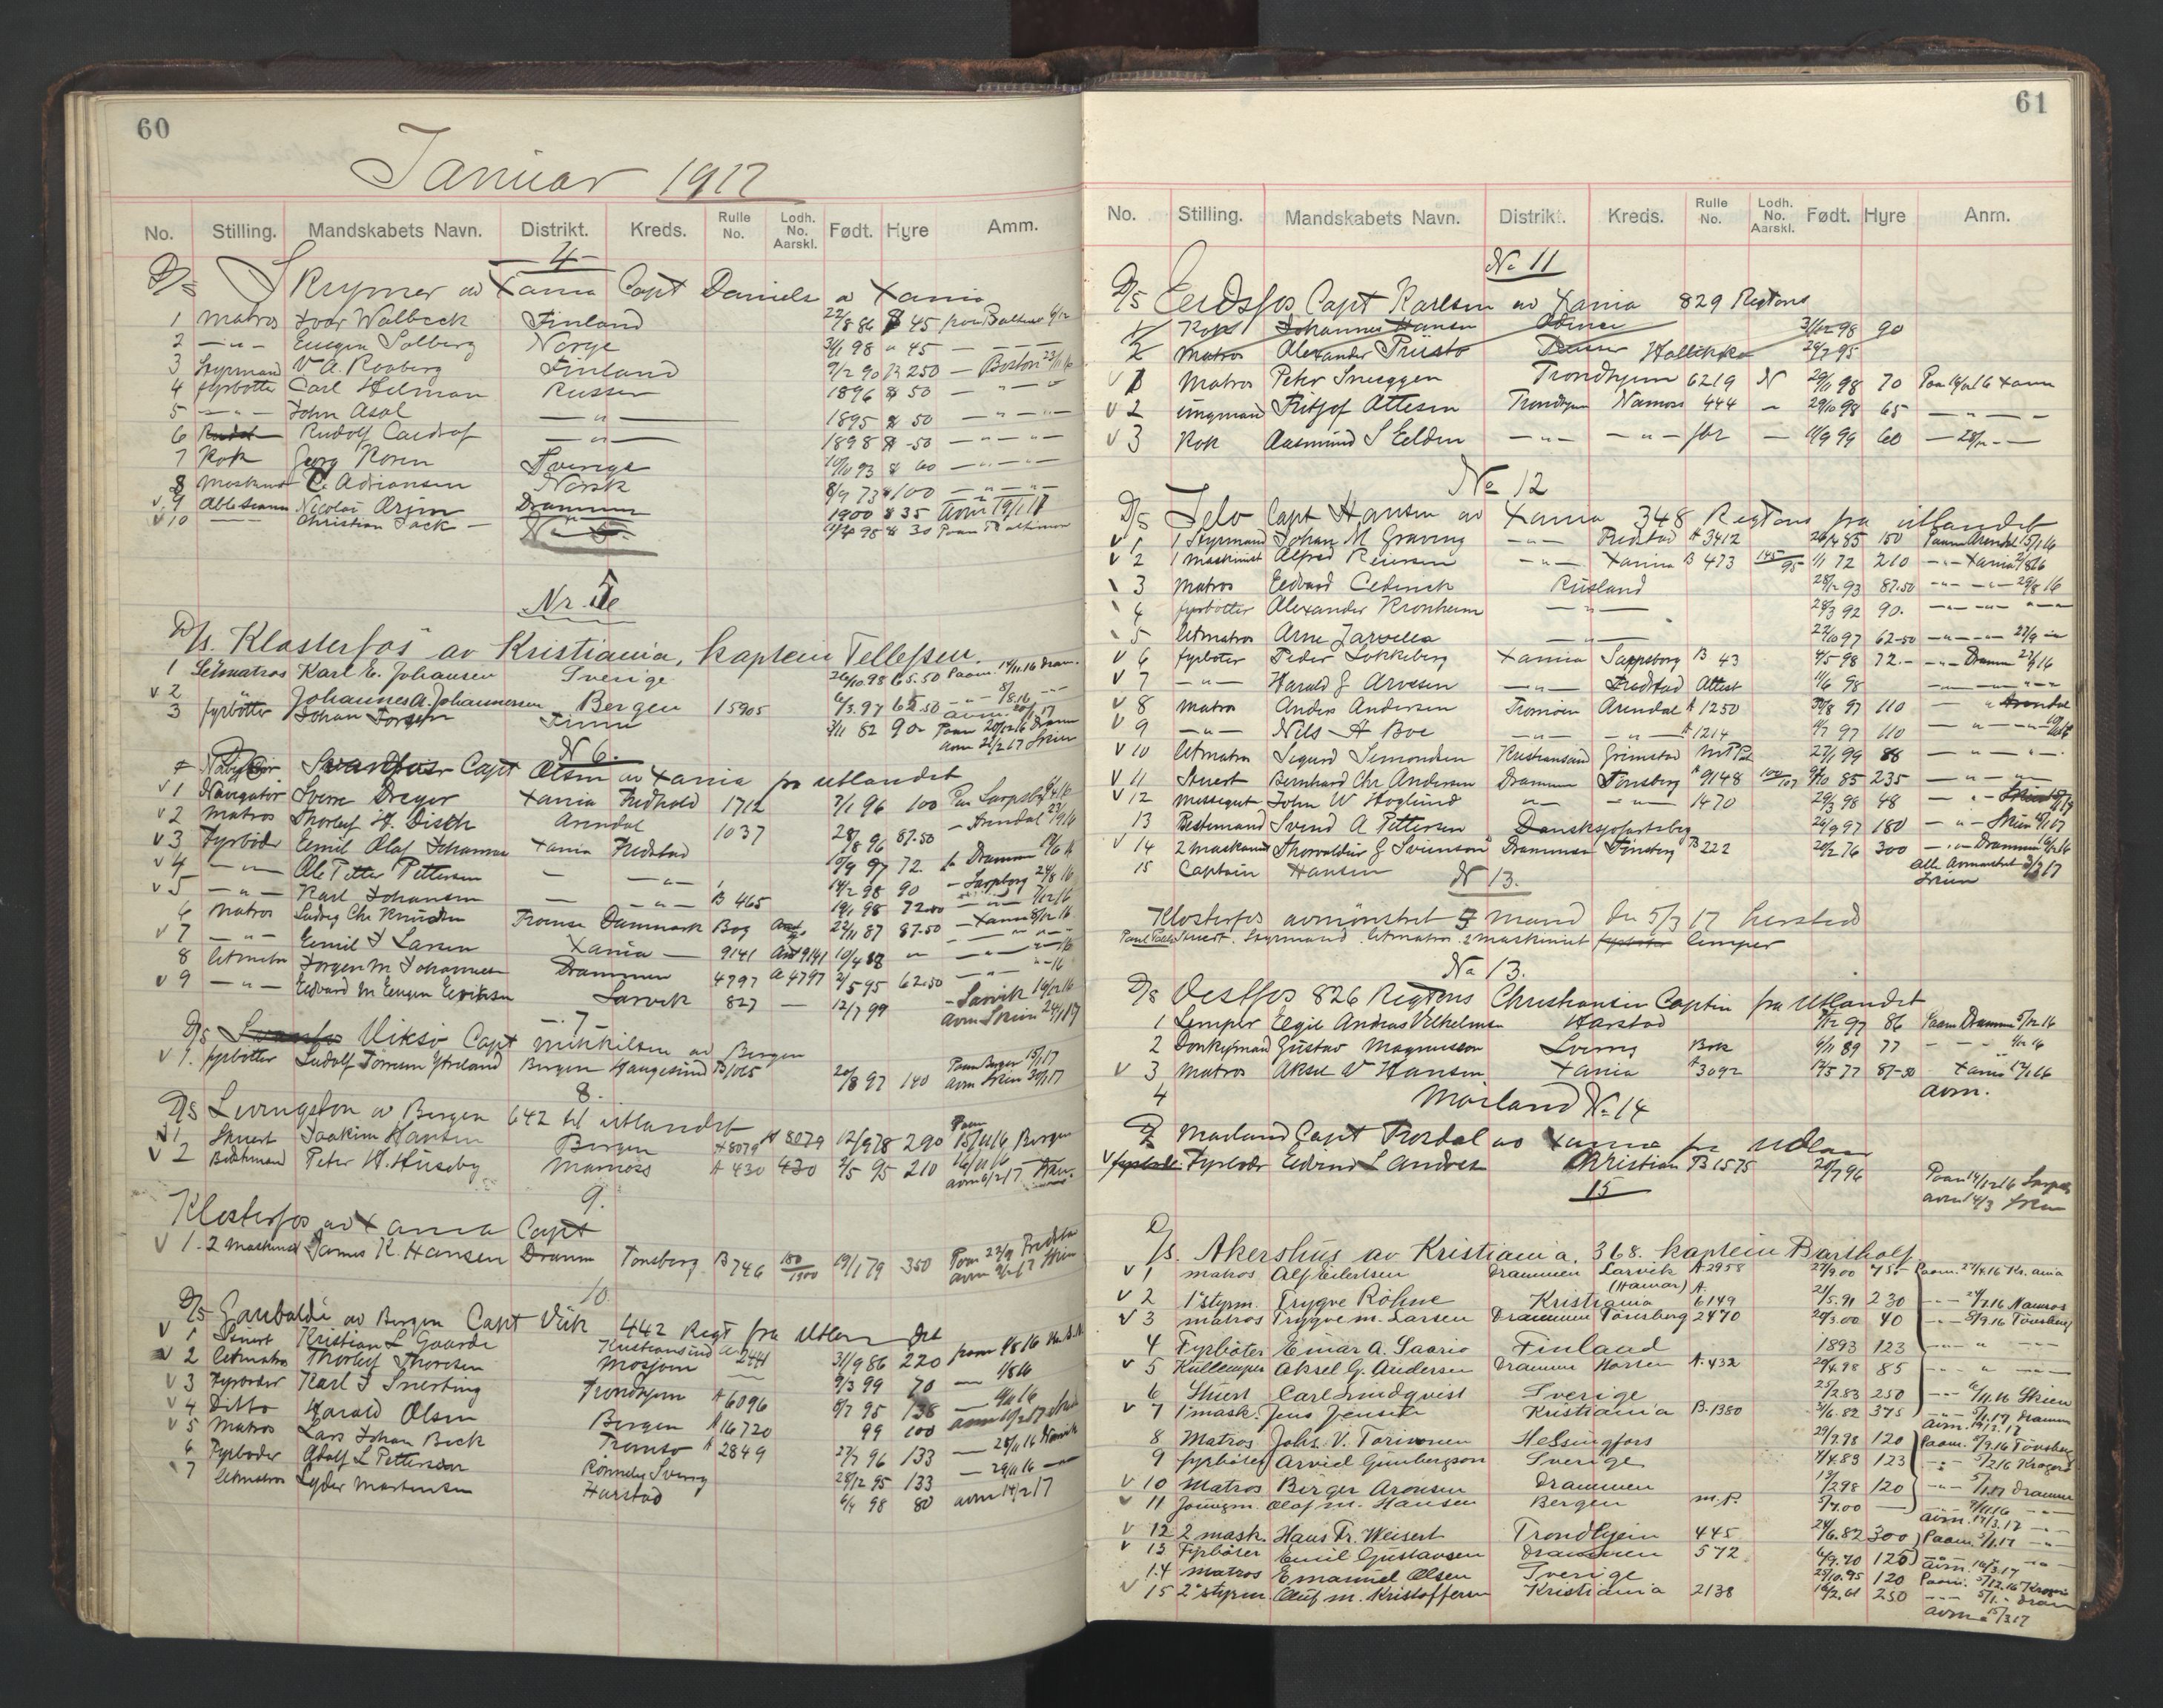 60
Januar 1917
No. Stilling. Mandskabets Navn. Distrikt. Kreds. Rulle No. Lodh. No. Aarskl. Født. Hyre Amm.
4
D/S Skrymer av Xania Capt Daniels a Xania
1 Matros Ivar Walbeck Finland 22/8 86 45
2 — " — Eugen Solberg Norge 98 " 45
3 Styrmand V. A. Roaberg Finland 9/2 90 250 — Boston 23/11 16
4 fyrbøtter Carl Helman Russer 1896 50 —
5 — " — John Asol — " — 1895 50 — " — " —
6 Rudolf — " — 1898 50 — " — " —
7 Kok Georg Koren Sverige 93 60 — " — " —
8 C. Adriansen Norsk 8/9 73 100 — " — " —
v 9 Nicolai Drammen 1900 35
v 10 Christian Jack — 98 30 Paam Baltimor
Nr. 5
D/s. Klosterfos av Kristiania, kaptein Tellefsen.
1 Letmatros Karl E. Johansen Sverige 26/10.98 65.50 Paam. 14/11.16 Dram.
v 2 Johannes A. Johannessen Bergen 15905 97 62.50
3 fyrbøtter Johan 3/11 82 90 Paam 20/12 16 Dramm
avm 21/2 17 Skien
N 6.
Capt Olsen av Xania fra utlandet
v 1 Navigatør Sverre Dreyer Xania Fredhald 1712 7/1 96 100
v 2 Matros Thorleif H. Disch Arendal 1037 28/8 96 87.50 — Arendal
v 3 Fyrbøder Emil Olaf Johannes Xania Fredstad 10/9 97 72.
v 4 — " — Ole Petter Pettersen — — " — 14/2 98 90 — Sarpsborg 24/8 16
v 5 — " — Karl Johansen — — " — B 465 19/1 98 72.00
6 Matros Ludvig Chr Knudsen Tromsø Danmark Bog 22/11 87 87.50 — Xania 8/12 16
v 7 — " — Emil F Larsen Xania — 9141 9141 10/4 88 " — " —
8 Letmatr Jorgen M Johannesen Drammen 4797 A 4797 2/5 95 62.50 — " —
v 9 — " — Edvard M Eugen Eriksen Larvik 827 — 12/7 99 — Larvik 16/12 16
avm Skien 24/1 17
7
D/S Vikso Capt Mikkilsen av Bergen
v 1. fyrbøtter Ludolf Torresen Ytreland Bergen Haugesund B/065 20/8 97 140 Paam Bergen 15/1 17
avm Skien 30/1 17
8.
D/S Livingston av Bergen 642 til utlandet
v 1 Stuert Joakim Hansen Bergen A 8079 A 8079 12/9 78 290 Paam 15/11 16 Bergen
v 2 Peter H. Huseby Namoss A 430 430 2/5 95 210 16/11 16
avm 6/2 17
9.
Klosterfos av Xania Capt
v 1. 2 Maskinist James K. Hansen Dramm Tonsberg B 746 180/1900 19/1 79 350 Paam 23/9 Fredstad
avm Skien
10.
D/S Garibaldi av Bergen Capt Vik 442 Regt fra Utlandet
v 1 Stuert Kristian L Gaarde Kristiansund A 2441 31/9 86 220
v 2 Letmatros Thorleif Thoresen Mosjøen — 9/3 99 70 — 1/8 16
v 3 Fyrbøder Karl I Snerting Trondhjem A 6096 8/7 95 138
v 4 Ditto Harald Olsen Bergen A 16720 99 100
v 5 Matros Lars Johan Beck Tromso A 2849 27/7 96 133
6 Fyrbøder Adolf L Pettersson Ronneby Sverig 28/12 95 133 — 29/11 16 —
7 Letmatros Lyder Martensen Harstad 6/4 98 80 avm 14/2 17
61
No. Stilling. Mandskabets Navn. Distrikt. Kreds. Rulle No. Lodh. No. Aarskl. Født. Hyre Anm.
No 11
D/S Eerdsfos Capt Karlsen av Xania 829 Regtons
1 Kok Johannes Hansen 31/12 98 90
2 Matros Alexander Priisto Russer Hallikko 24/7 95
v 1 Matros Peter Sneeggen Trondhjem 6219 N 29/11 98 70 Paa 16/12 16 Xania
v 2 ungmand Fritjof Ottesen Trondhjem Namoss 444 — 29/10 98 65 — " —
v 3 Kok Aasmund S Eelden — " — — " — for — 11/9 99 60
No 12
D/S Jelo Capt Hansen av Xania 348 Regtons fra utlandet
v 1 1 Styrmand Johan M Graving — " — Fredstad A 3412 26/4 85 150 Paam Arendal 15/1 16
v 2 1 Maskinist Alfred Reiersen — " — Xania B 473 145/95 1/1 72 210 — " — Xania
3 Matros Eedvard Cedenck Rusland 28/12 93 87.50 — " — 29/8 16
4 fyrbøtter Alexander Kronheim — " — 28/3 92 90. — " —
5 Letmatros Arne Jarvella — " — 22/10 97 62.50 — " — 27/9
v 6 fyrboter Peder Lokkeberg Xania Sarpsborg B 43 4/5 98 72.— — " — Dramm 27/9 16
v 7 — " — Harald G Arvesen — " — Fredstad Attest 11/6 98 — " —
v 8 Matros Anders Andersen Tromøen Arendal A 1250 30/8 97 110 — " Arendal
v 9 — " — Nils A Boe — " — — " — A 1214 4/7 97 110 — " —
v 10 Letmatros Sigurd Simonsen Kristiansand Grimstad 27/1 99 88 — " — " —
v 11 Stuert Bernhard Chr Andersen Drammen Tonsberg A 9148 9/10 85 235 — " —
v 12 Messegut John W Hoglund — " — — " — 1470 29/3 98 48
13 Bestemand Svend A Pettersen Dansksjofartsbog 26/9 97 180 — " — Skien
v 14 2 Maskinist Thorvaldur G Svienson Drammen Tonsberg B 222 20/2 76 300 — " — Drammen
15 Captain Hansen Alle Avmønstret 3/3 17
Skien
N 13.
Klosterfos avmønstret 3 mand den 5/3 17 herstad
Stuert. Styrmand. Letmatros 2 maskinist lemper
No 13.
D/S Vestfos 826 Regtons Christiansen Captin fra Utlandet
1 Lemper Elgie Andreas Vilhelmsen Harstad 97 86 Paam Dramm 5/12 16
2 Donkeymand Gustav Magnusson Sverrig Bok 6/11 89 77 — — " 16
v 3 Matros Aksel V Hansen Xania A 3092 19/5 77 87-50 Xania
4 avm.
Morland No 14
D/S Morland Capt Trosdal av Xania fra Udlan
v Fyrbøder Eidvind L Andres Kristian B 1575 20/7 96 Paam 14/12 16 Sarps
avm 14/3 Skien
15
D/s. Akershus av Kristiania. 368. kaptein Bartholf.
v 1 matros Alf Eilertsen Drammen Larvik A. 2958 27/9.00 75.- Paam. 27/4.16 Kr. ania
v 2 1ste styrm. Trygve Röhne Kristiania (Hamar) A. 6149 21/5.91 230 — " — 24/7.16 Namsos
v 3 matros Trygve M. Larsen Drammen Tönsberg 2470 24/3.00 40 — " — 8/9.16 Tönsberg
4 Fyrböter Einar A. Saario Finland 1893 123 — " — " —
v 5 Kullemper Aksel G. Andersen Drammen Horten A. 432 29/4.98 85 — " —
6 Stuert Carl Lundqvist Sverige 25/2.83 250 — " — 6/11.16 Skien
v 7 1 mask. Jens Jensen Kristiania B. 1380 3/6.82 375 — " — 5/1.17 Dramm
avm. 14/3.17
8 Matros Johs. V. Torivonen Helsingfors 29/7.98 120 Paam. 8/9.16 Tönsberg
9 fyrböter Arvid Gunbergson Sverige 4/4.89 123 — " — 5/12 16 Kragerö
v 10 Matros Birger Aronsen Drammen 13/2 98 120 — " — 5/1.17 Dramm
v 11 Joungm. Olaf M. Hansen Bergen m.P. 5/7.00 — — " — 9/11.16 — " —
avm. 17/3.17 — " —
v 12 2 mask. Hans Fr. Weisert Trondhjem 445 24/6.82 300 Paam. 5/1.17 — " —
v 13 Fyrböter Emil Gustavsen Drammen 572 6/9.70 125 — " — — " —
avm. 14/3.17
14 matros Emanuel Olsen Sverige 25/10.95 120 Paam. 5/12.16 Kragerö
v 15 2 styrm. Oluf M. Kristoffersen Kristiania 2138 16/2.61 250 — " — 5/1.- Dram
avm. 15/3.17